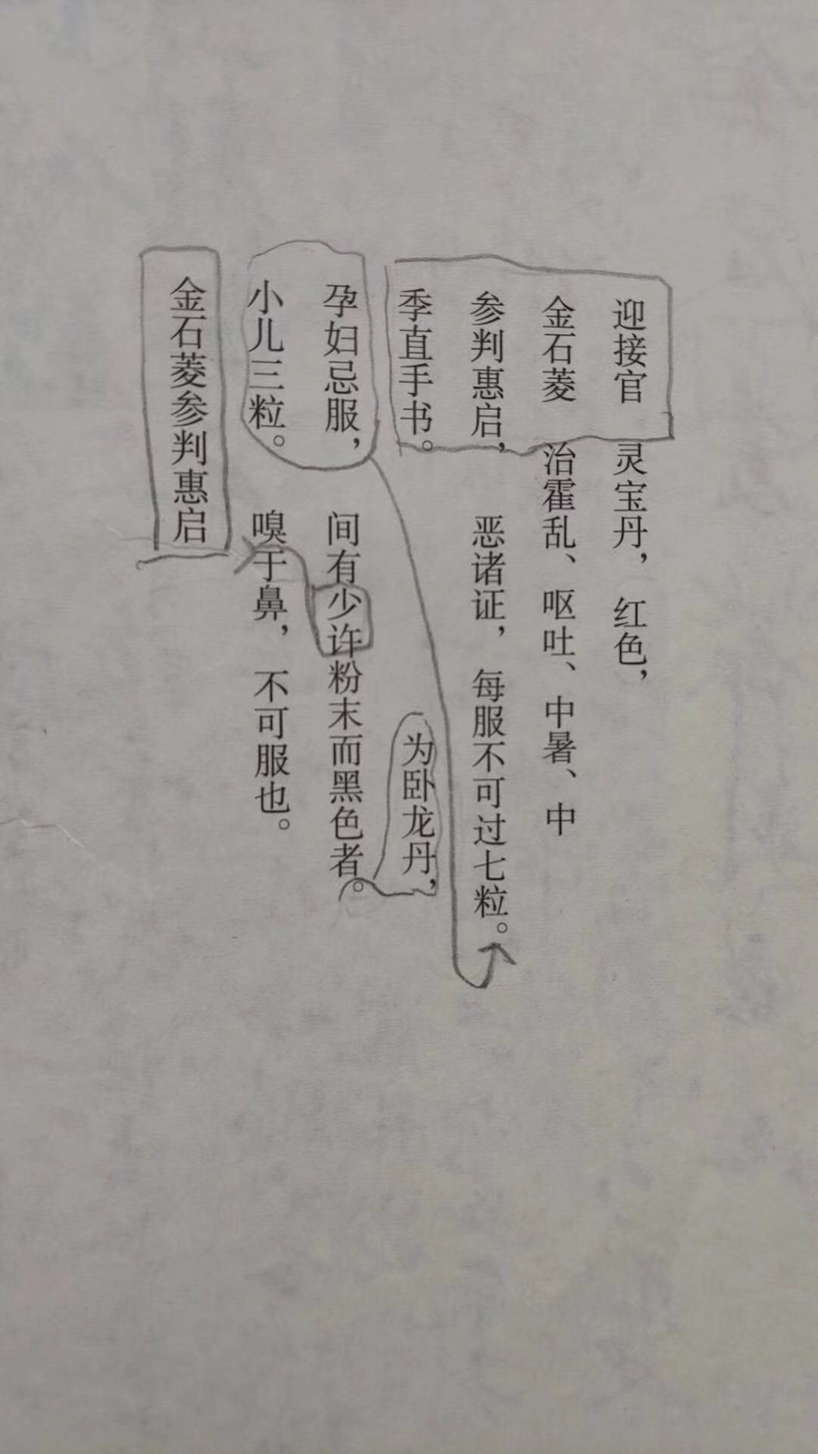 迎接官 灵宝丹，红色，
金石菱 治霍乱、呕吐、中暑、中
参判惠启， 恶诸证，每服不可过七粒。
季直手书。 为卧龙丹，
孕妇忌服， 间有少许粉末而黑色者。
小儿三粒。 嗅于鼻，不可服也。
金石菱参判惠启